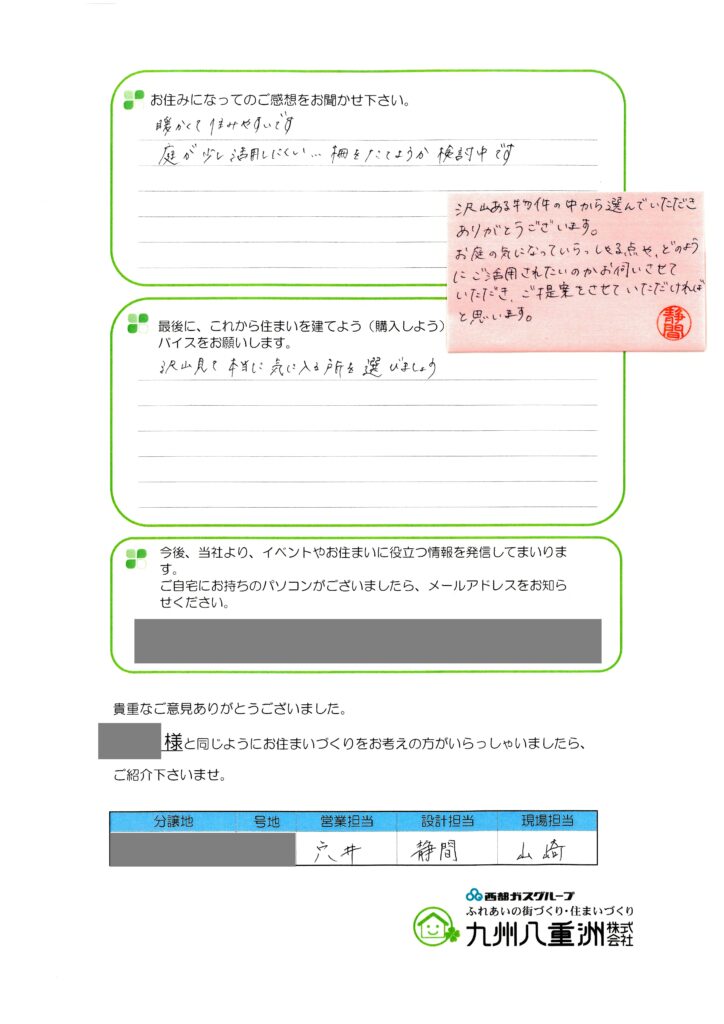 お住みになってのご感想をお聞かせ下さい。
暖かくて住みやすいです
庭が少し活用しにくい… 柵をたてようか検討中です
沢山ある物件の中から選んでいただき
ありがとうございます。
お庭の気になっていらっしゃる点や、どのよう
にご活用されたいのかお伺いさせて
いただき、ご提案をさせていただければ
と思います。
静間
最後に、これから住まいを建てよう（購入しよう）
バイスをお願いします。
沢山見て本当に気に入る所を選びましょう
今後、当社より、イベントやお住まいに役立つ情報を発信してまいりま
す。
ご自宅にお持ちのパソコンがございましたら、メールアドレスをお知ら
せください。
貴重なご意見ありがとうございました。
様と同じようにお住まいづくりをお考えの方がいらっしゃいましたら、
ご紹介下さいませ。
分譲地 号地 営業担当 設計担当 現場担当
穴井 静間 山崎
西部ガスグループ
ふれあいの街づくり・住まいづくり
九州八重洲株式会社